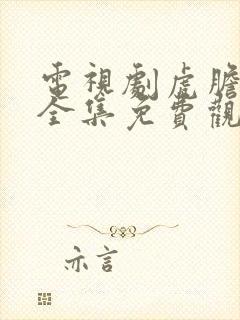 電視劇虎膽
全集免費觀
亦言